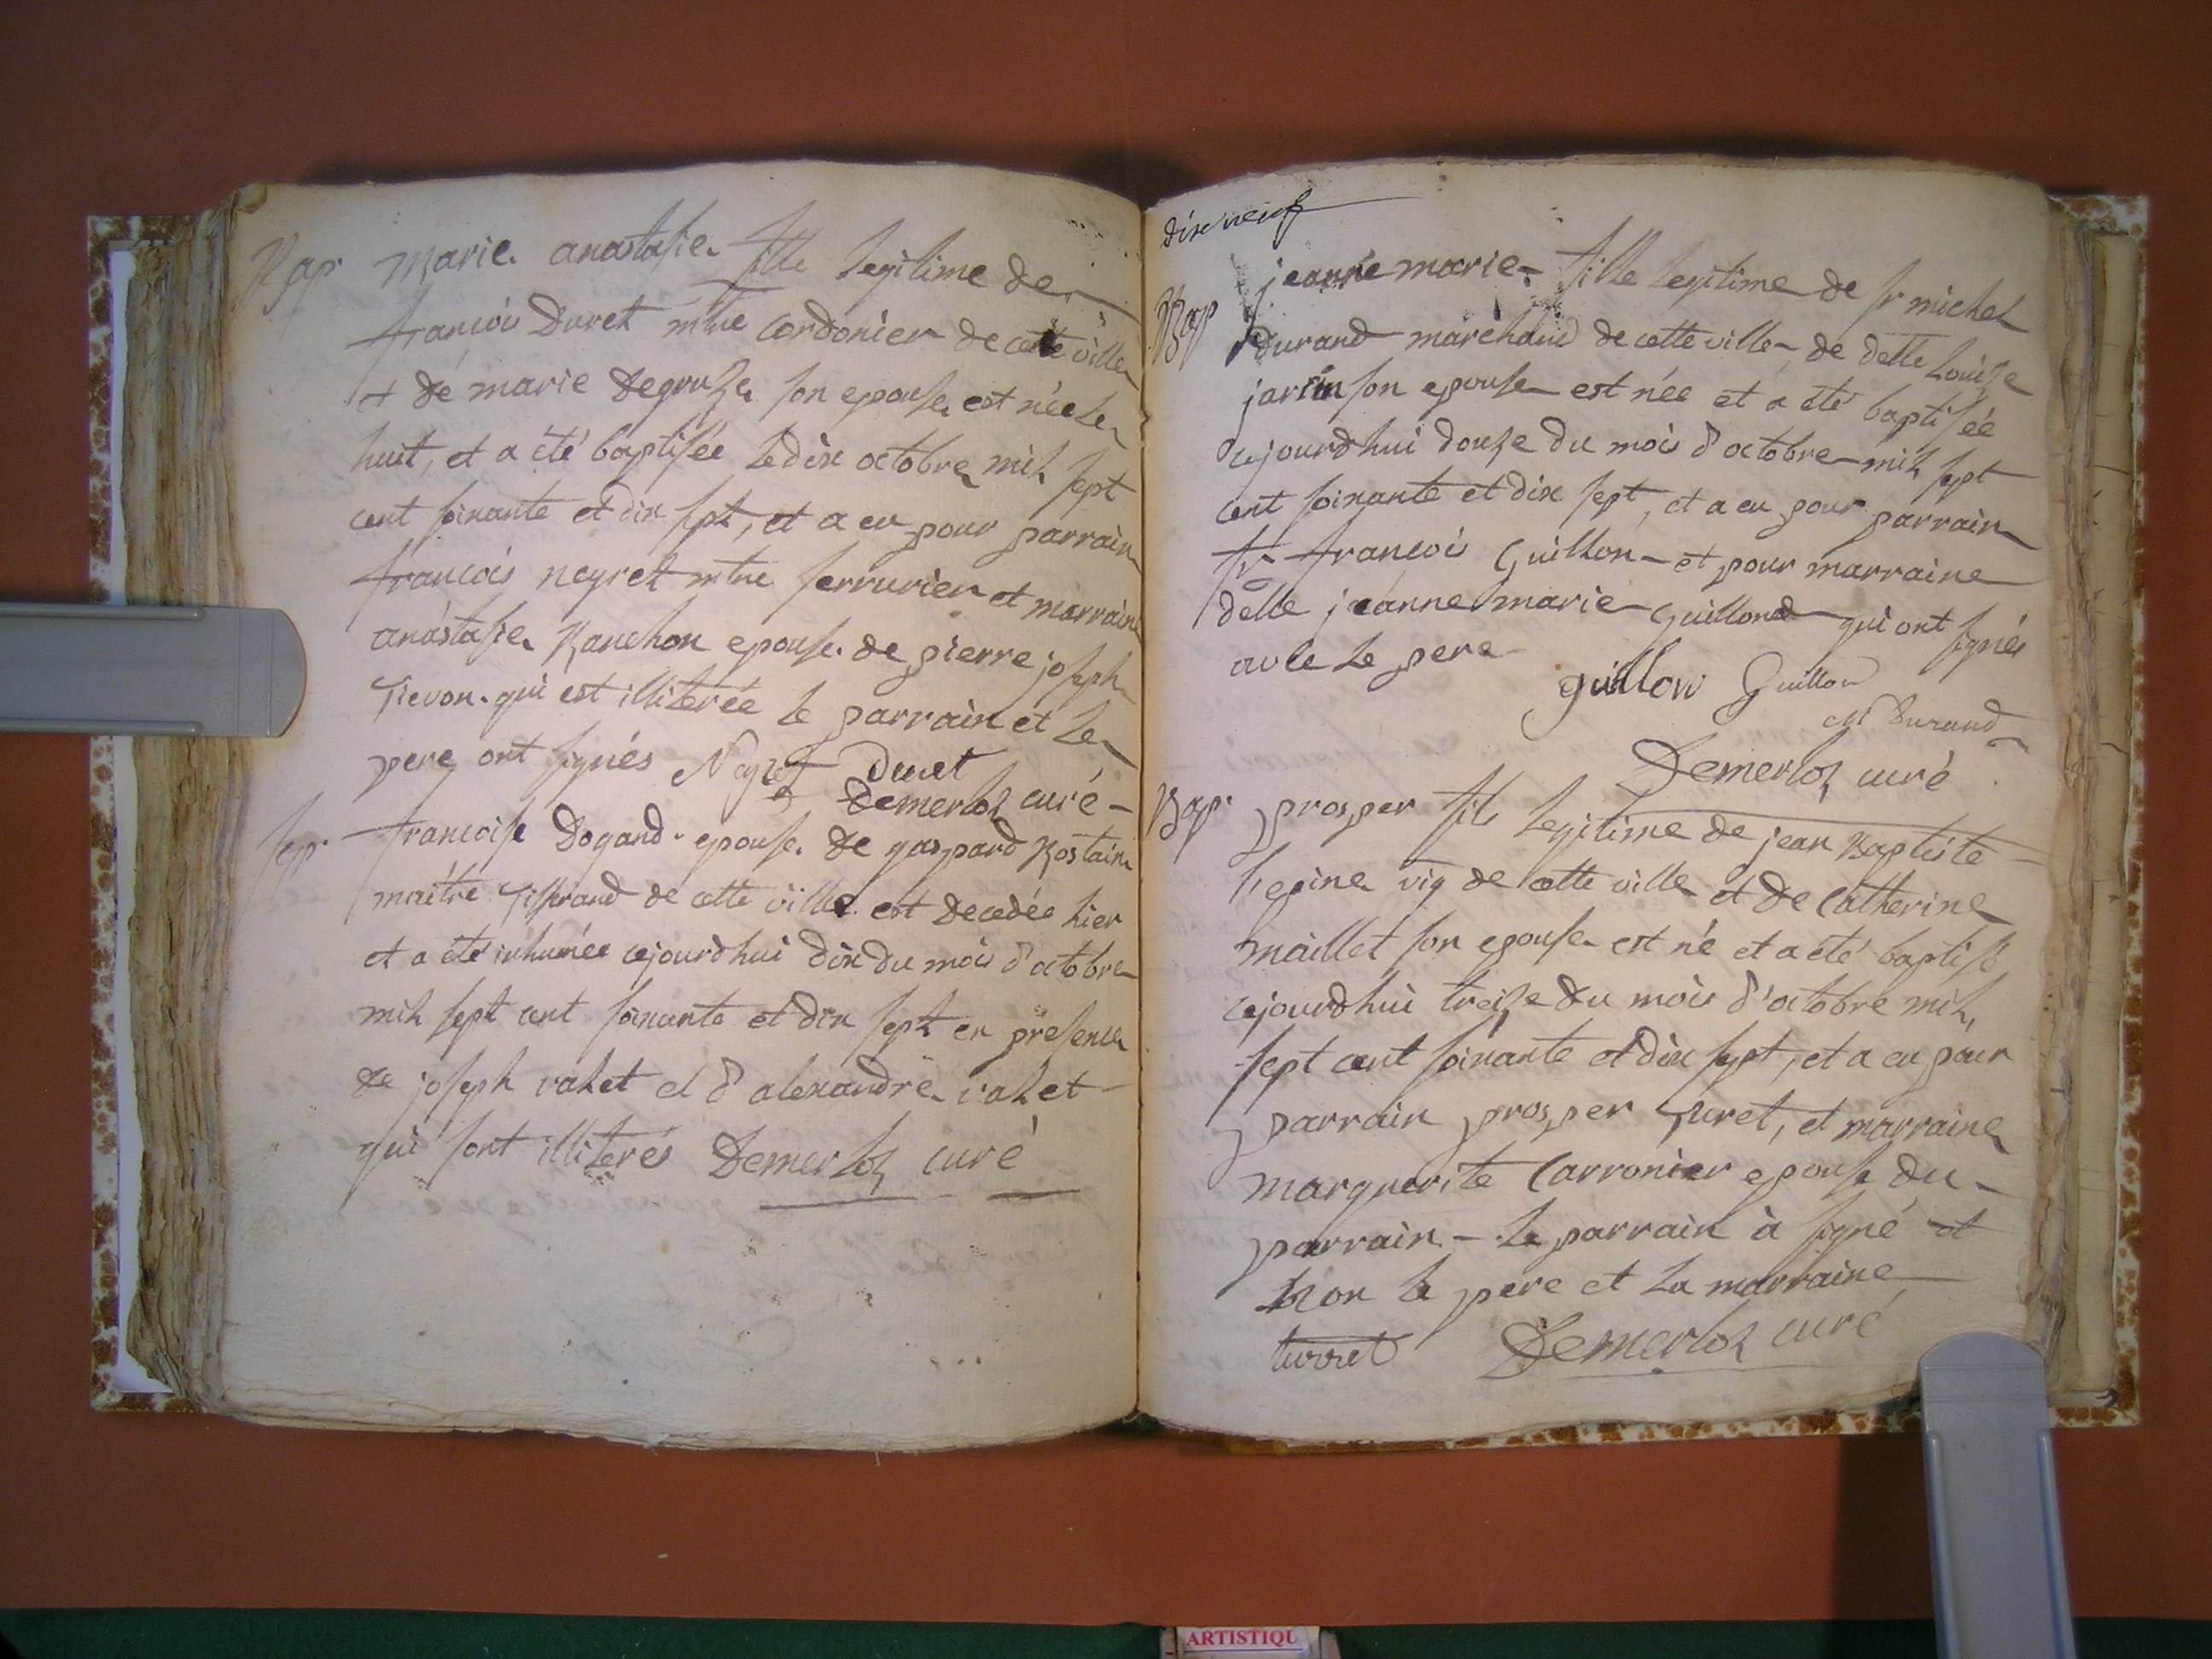 Bap Marie anastasie fille legitime de
francois Duret mtre Cordonier de cette ville
et de marie Degouze son epouse est née le
huit, et a été baptisée le dix octobre mil sept
cent soixante et dix sept, et a eu pour parrain
francois neyret mtre serrurier et marraine
anastasie Ranchon epouse de pierre joseph
Tievon qui est illiterée le parrain et le
pere ont signés Neyret Duret
Demerloz curé
sep. francoise Dogand epouse de gaspard Rostain
maitre Tisserand de cette ville est decedée hier
et a été inhumée cejourdhui dix du mois d'octobre
mil sept cent soixante et dix sept en presence
de joseph valet et d'alexandre valet
qui sont illiterés Demerloz curé
dix neuf
Bap jeanne marie fille legitime de sr michel
durand marchand de cette ville de delle Louize
jarrin son epouse est née et a été baptisée
cejourdhui douze du mois d'octobre mil sept
cent soixante et dix sept, et a eu pour parrain
sr francois Guillon et pour marraine
delle jeanne marie Guillond qui ont signés
avec le pere
guillon Guillon
M Durand
Demerloz curé
Bap. prosper fils legitime de jean Baptiste
l'epine vig de cette ville et de Catherine
maillet son epouse est né et a été baptisé
cejourdhui treize du mois d'octobre mil
sept cent soixante et dix sept, et a eu pour
parrain prosper Turet, et marraine
marguerite Carronier epouse du
parrain - le parrain à signé et
non le pere et la marraine
turret Demerloz curé
ARTISTIQU